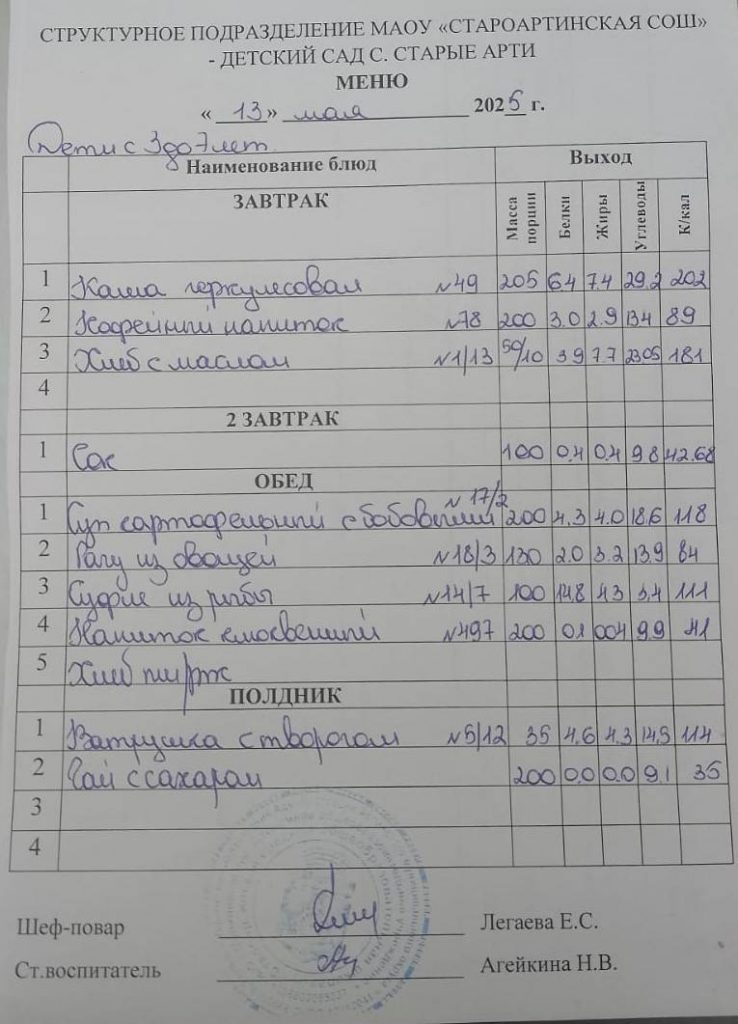 СТРУКТУРНОЕ ПОДРАЗДЕЛЕНИЕ МАОУ «СТАРОАРТИНСКАЯ СОШ»
- ДЕТСКИЙ САД С. СТАРЫЕ АРТИ
МЕНЮ
« 13 » мая 2025 г.
Дети с 3 до 7 лет
Наименование блюд Выход
ЗАВТРАК Масса порции Белки Жиры Углеводы К/кал
1 Каша геркулесовая №49 205 6.4 7.4 29.2 202
2 Кофейный напиток №78 200 3.0 2.9 134 89
3 Хлеб с маслом №1/13 50/10 39 7.7 23.05 181
4
2 ЗАВТРАК
1 Сок 100 0.4 0.4 9.8 42.68
ОБЕД
1 Суп картофельный с бобовыми №17/2 200 4.3 4.0 18.6 118
2 Рагу из овощей №18/3 130 2.0 3.2 13.9 84
3 Суфле из рыбы №14/7 100 14.8 4.3 3.4 111
4 Напиток клюквенный №497 200 0.1 0.04 9.9 41
5 Хлеб пш/рж
ПОЛДНИК
1 Ватрушка с творогом №5/12 35 4.6 4.3 14.5 114
2 Чай с сахаром 200 0.0 0.0 9.1 35
3
4
Шеф-повар Легаева Е.С.
Ст.воспитатель Агейкина Н.В.